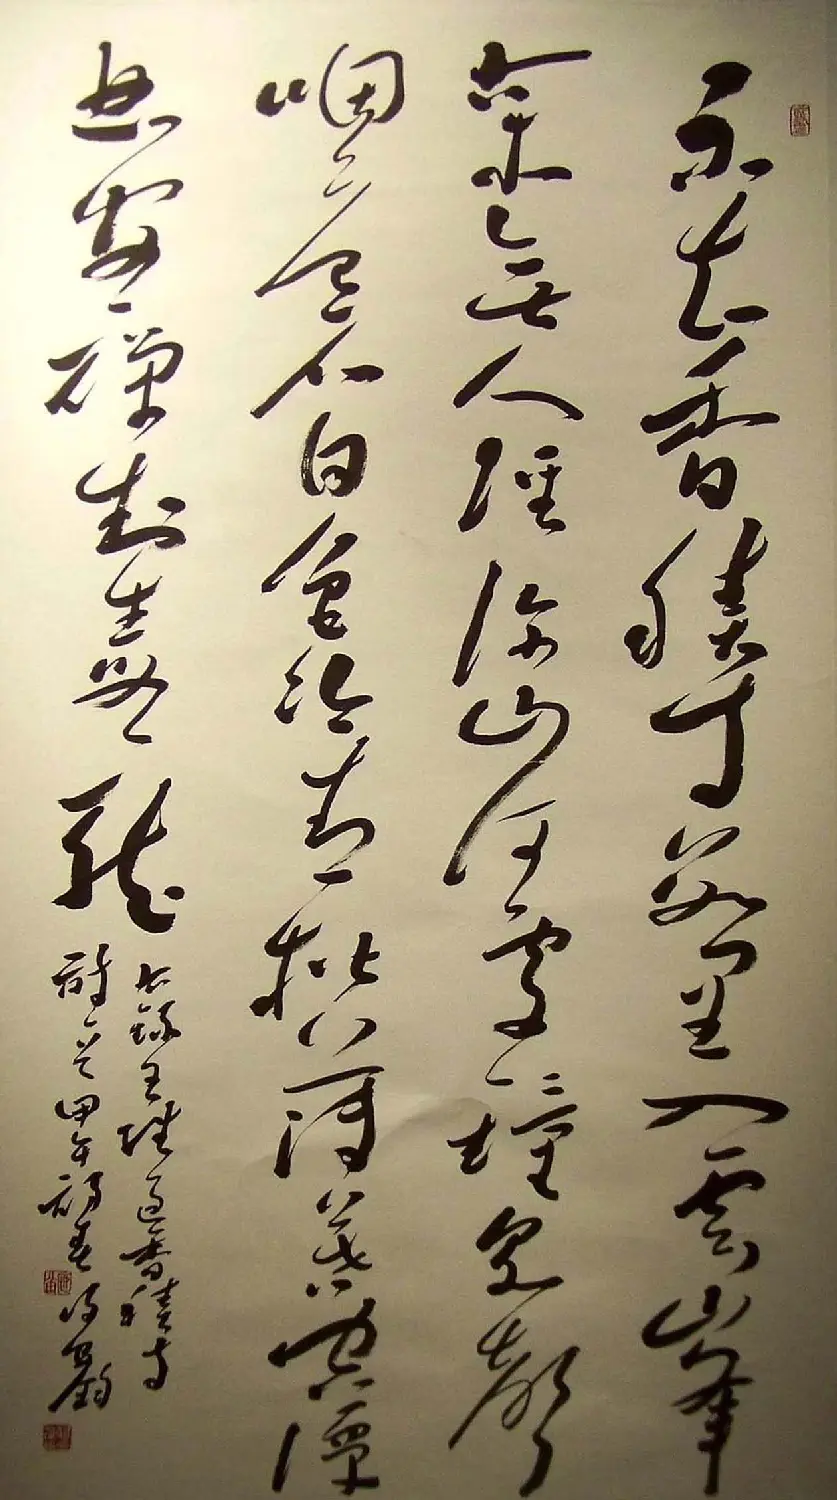 不知香積寺數里入雲峯
古木無人徑深山何處鐘泉聲
咽危石日色冷青松薄暮空潭
曲安禪制毒龍
右錄王維過香積寺
詩甲午春